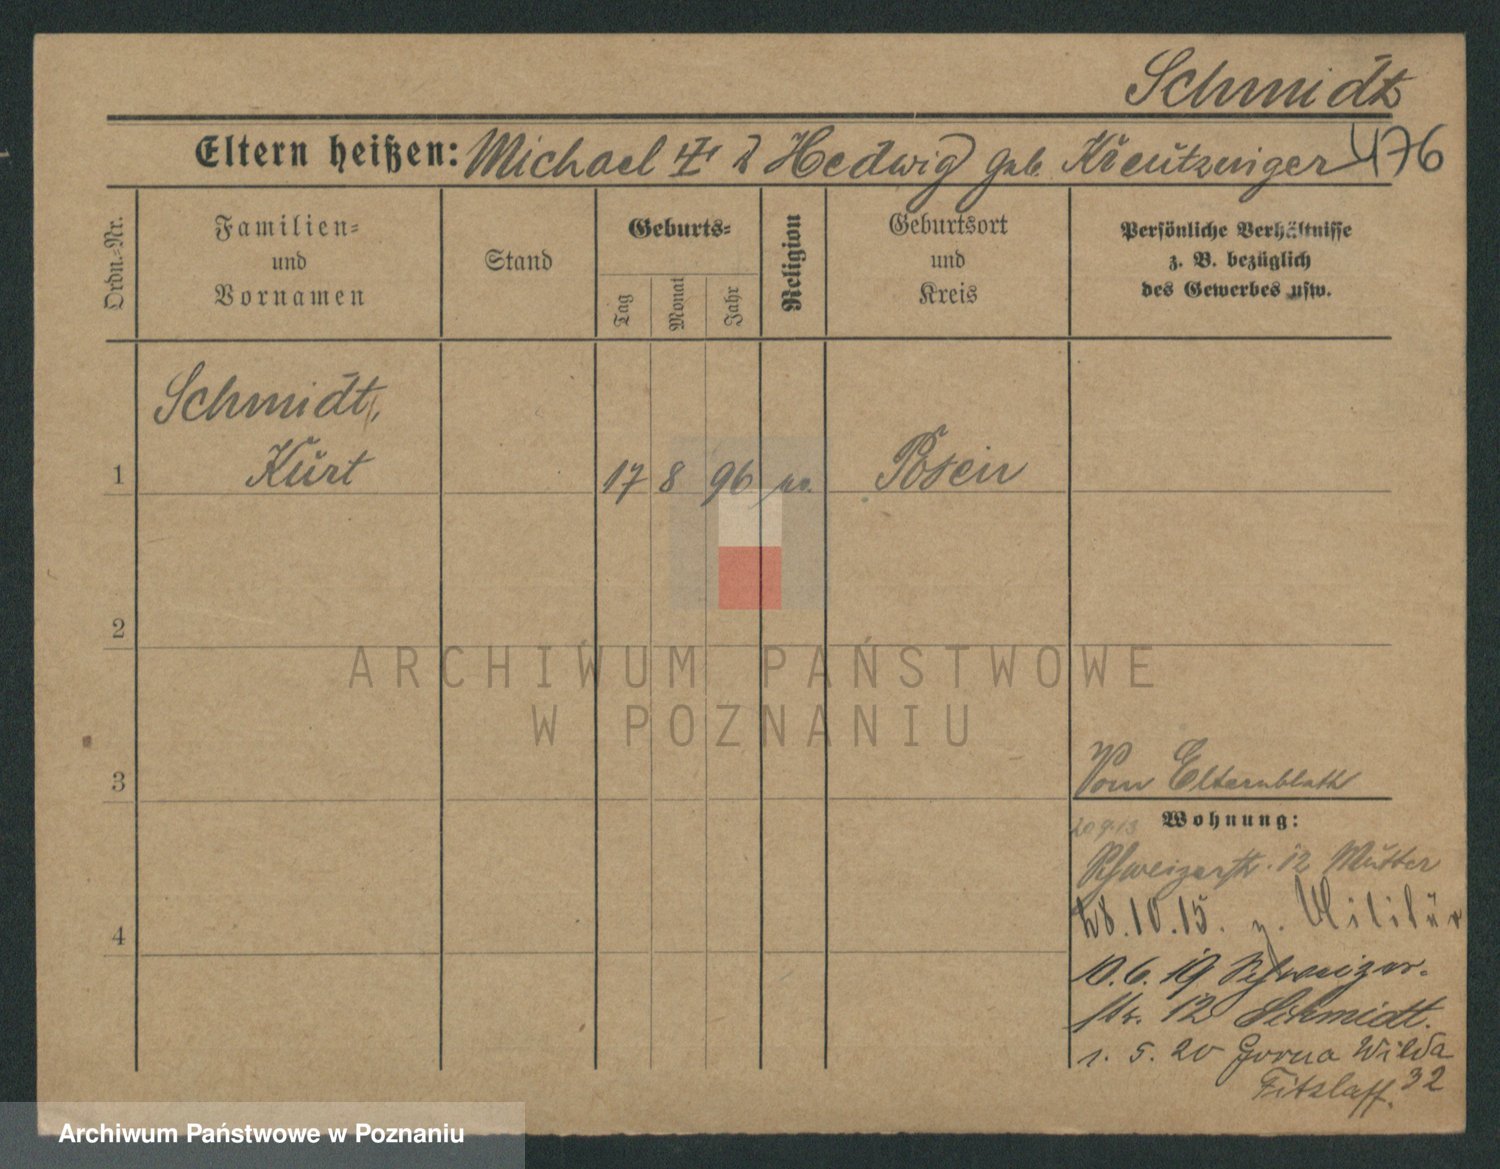 Schmidt
Eltern heißen: Michael u Hedwig geb. Kreutzinger 476
Ordn.-Nr.
Familien-
und
Vornamen
Stand
Geburts-
Tag
Monat
Jahr
Religion
Geburtsort
und
Kreis
Persönliche Verhältnisse
z. B. bezüglich
des Gewerbes usw.
Schmidt,
1 Kurt 17 8 96 Posen
2
ARCHIWUM PAŃSTWOWE
W POZNANIU
Vom Elternblatt
3
Wohnung:
20 9. 13
Schweizerstr. 12 Mutter
28.10.15. z. Militär
4
10.6.19 Schweizer-
str. 12 Schmidt.
1. 5. 20 Gorna Wilda
32
Fitzlaff.
Archiwum Państwowe w Poznaniu